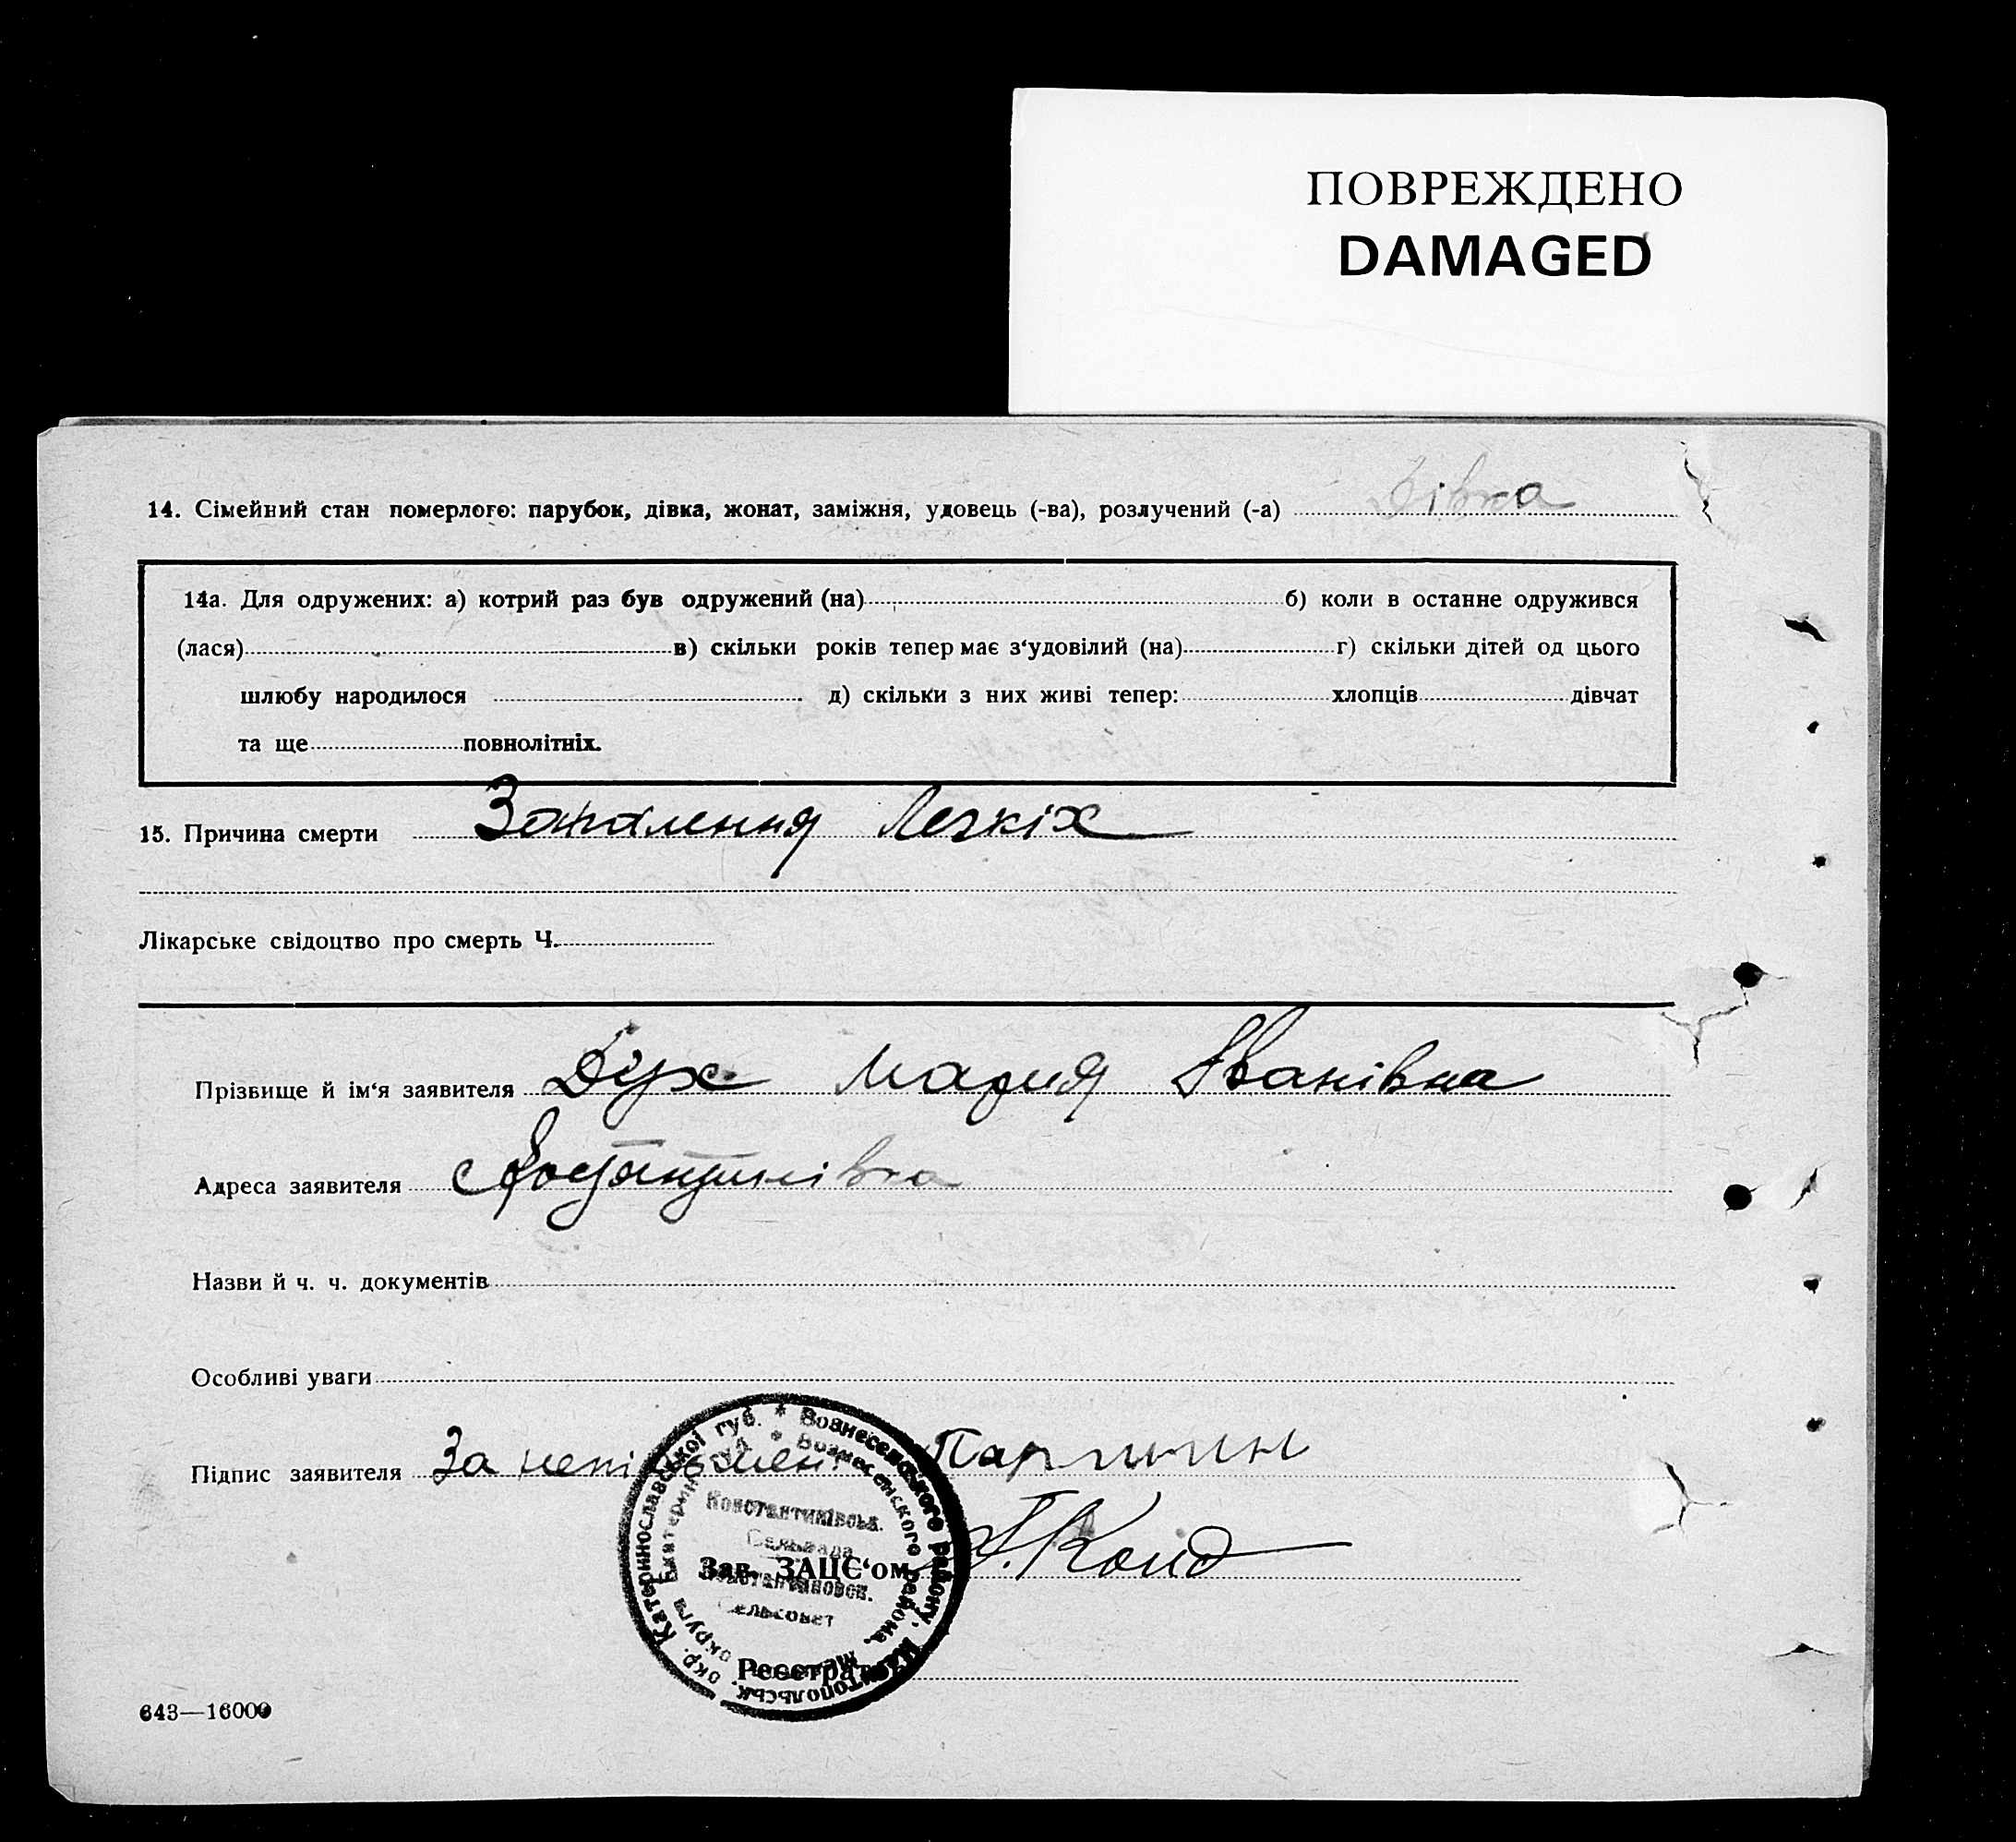 ПОВРЕЖДЕНО
DAMAGED
14. Сімейний стан померлого: парубок, дівка, жонат, заміжня, удовець (-ва), розлучений (-а) Дівка
14а. Для одружених: а) котрий раз був одружений (на) б) коли в останне одружився
(лася) в) скільки років тепер має з‘удовілий (на) г) скільки дітей од цього
шлюбу народилося д) скільки з них живі тепер: хлопців дівчат
та ще повнолітніх.
15. Причина смерти Запалення Легкіх
Лікарське свідоцтво про смерть Ч.
Прізвище й ім‘я заявителя Дух Мария Іванівна
Адреса заявителя с
Назви й ч. ч. документів
Особливі уваги
Підпис заявителя За
окр. Катеринославської губ. * Вознесенського району, Мелітопольськ.
округа * Вознесенского района,
Константинівськ.
Сельрада
Зав. ЗАЦС‘ом
Константиновск.
сельсовет
Реєстрат
643—16000